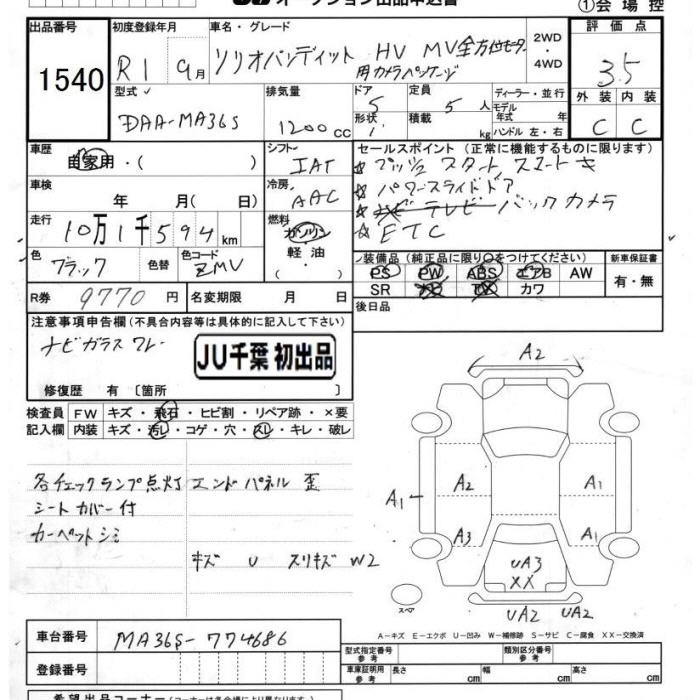 オークション出品申込書
①会場控
出品番号
1540
初度登録年月
R1 9月
車名・グレード
ソリオバンディット HV MV全方位モニター
用カメラパッケージ
2WD
・
4WD
評価点
3.5
外装 内装
C C
型式
DAA-MA36S
排気量
1200cc
ドア
5
形状
定員
5人
積載
kg
ディーラー・並行
モデル
年式 年
ハンドル 左・右
車歴
自家用・( )
シフト
IAT
セールスポイント(正常に機能するものに限ります)
☆プッシュスタート スマートキ
☆パワースライドドア
☆ナビ テレビ バックカメラ
☆ETC
車検
年 月( 日)
冷房
AAC
走行
10万1千594km
燃料
ガソリン
軽油
・
色
ブラック
色替
色コード
ZMV
装備品(純正品に限り○をつけてください)
PS PW ABS エアB AW
SR ナビ TV カワ
新車保証書
有・無
R券 9770円
名変期限 月 日
後日品
注意事項申告欄(不具合内容等は具体的に記入して下さい)
ナビガラスワレ
JU千葉 初出品
修復歴 有〔箇所
検査員
記入欄
FW キズ・飛石・ヒビ割・リペア跡・×要
内装 キズ・汚レ・コゲ・穴・スレ・キレ・破レ
各チェックランプ点灯 エンドパネル 歪
シートカバー付
カーペットシミ
キズ U スリキズ W2
A2
A1
A2
A1
A1
A3
A1
UA3
XX
UA2 UA2
スペア
A-キズ E-エクボ U-凹み W-補修跡 S-サビ C-腐食 XX-交換済
車台番号
MA36S-774686
登録番号
型式指定番号
参考
類別区分番号
参考
車庫証明用
参考
長さ cm
幅 cm
高さ cm
希望出品コーナー